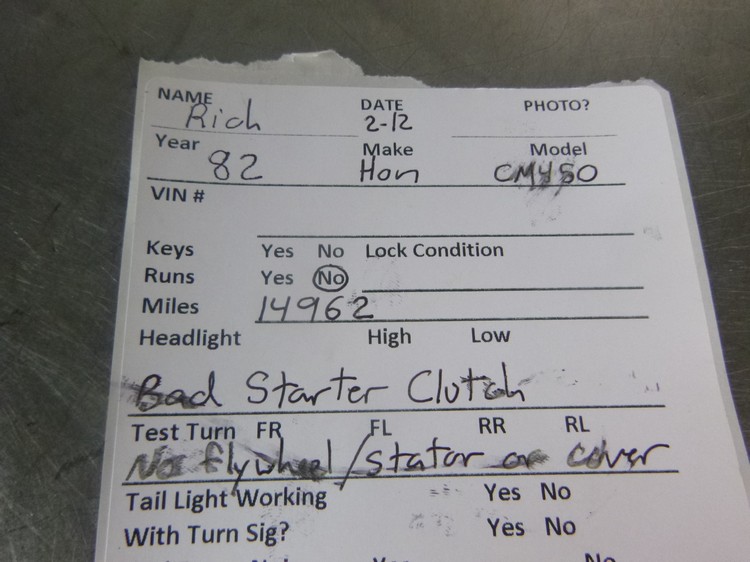 NAME Rich DATE 2-12 PHOTO?
Year 82 Make Hon Model CM450
VIN #
Keys Yes No Lock Condition
Runs Yes No
Miles 14962
Headlight High Low
Bad Starter Clutch
Test Turn FR FL RR RL
No flywheel/stator or cover
Tail Light Working Yes No
With Turn Sig? Yes No
No